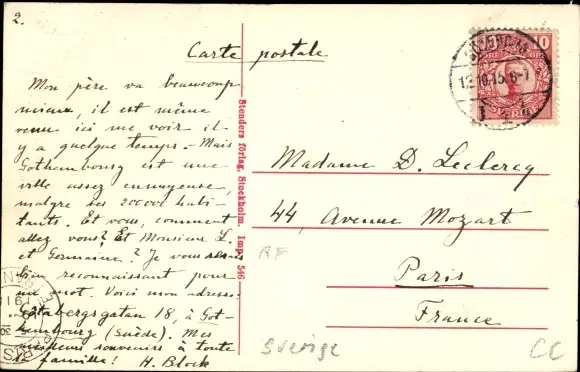 2.
Carte postale
Mon père va beaucoup
mieux, il est même
venu ici me voir il
y a quelque temps. - Mais
Gothembourg est une
ville assez ennuyeuse,
malgré ses 200000 habi-
tants. Et vous, comment
allez vous? Et Monsieur L.
et Germaine? Je vous serais
bien reconnaissant pour
un mot. Voici mon adresse:
Götabergsgatan 18, à Got-
hembourg (Suède). Mes
meilleurs souvenirs à toute
la famille! H. Block
Stenders förlag, Stockholm. Imp. 546
10
GÖTEBORG
12.10.15. 6-7
Madame D. Leclercq
44, Avenue Mozart
Paris
France
RF
Sverige
CC
PARIS